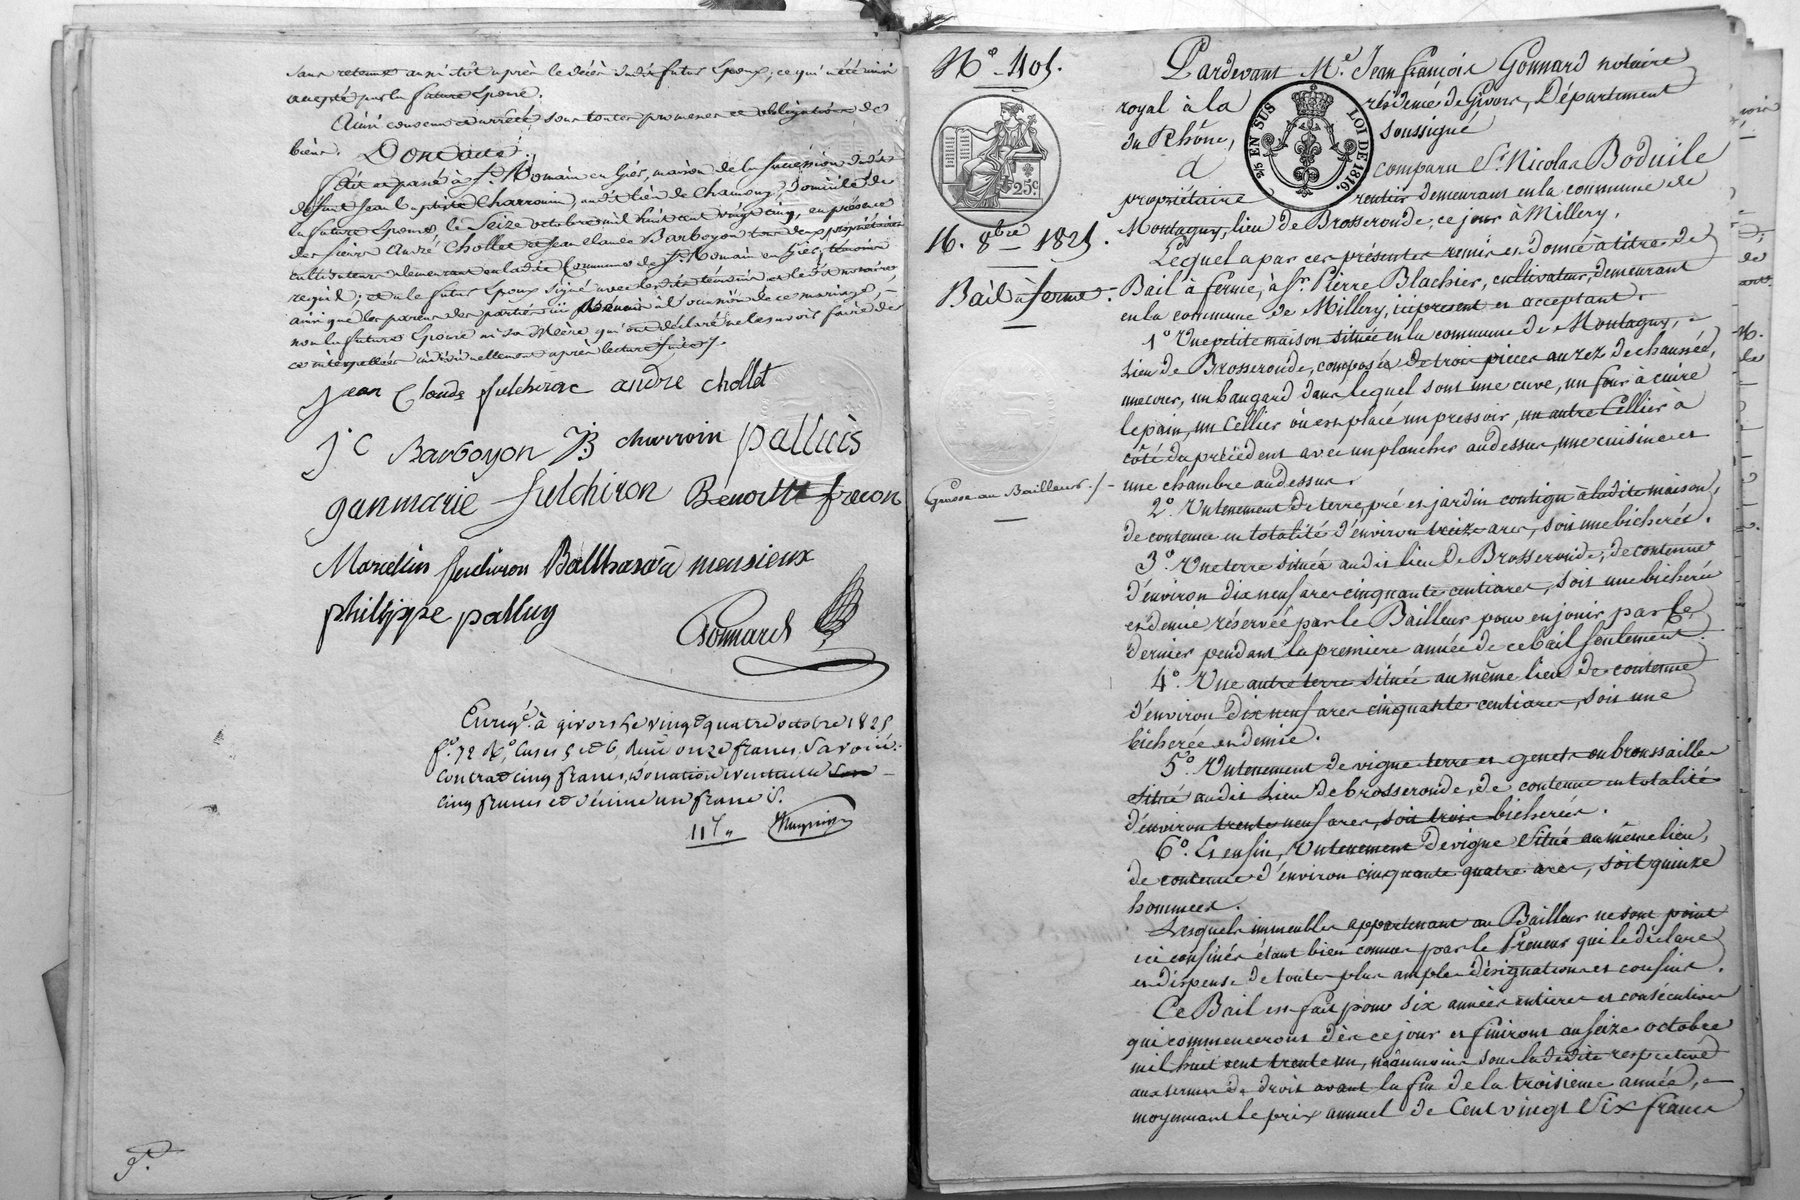 sans retenue aussitôt après le décès dudit futur Epoux; ce qui a été ainsi
accepté par la future Epouse.
Ainsi convenu et arrêté sous toutes promesses et obligations de
biens. Dont acte.
fait et passé à St. Romain en Gier, maison de la succession dudit
défunt Jean Baptiste Charroin, audit lieu de Chamony, domicile de
la future Epouse, le Seize octobre mil huit cent vingt cinq, en présence
des sieurs André Chollet et Jean Claude Barboyon tous deux propriétaires
cultivateurs demeurant en ladite Commune de St. Romain en Gier, témoins
requis; et a le futur Epoux signé avec lesdits témoins et ledit notaire,
ainsi que les parens des parties ici réunis à l'occasion de ce mariage,
non la future Epouse ni sa Mère qui ont déclaré ne le savoir faire de
ce interpellées individuellement après lecture faite./.
jean Claude fulchirac andre chollet
J C Barboyon JB charroin palluis
janmarie fulchiron Benoitte frecon
Marcellin fulchiron Balthasard mensieux
philippe palluy
Gonnard
Enregé. à givors le vingt quatre octobre 1825
fo. 72 Ro. Cases 5 et 6, Reçu onze francs Savoir:
contrat cinq francs, donation eventuelle
cinq francs et décime un franc
11f "
N° 405.
25c
16. 8bre 1825.
Bail à ferme.
Grosse au Bailleur./.
Pardevant Me. Jean françois Gonnard notaire
royal à la résidence de Givors, Département
du Rhône, soussigné
EN SUS LOI DE 1816.
a comparu Sr. Nicolas Boduile
propriétaire rentier demeurant en la commune de
Montagny, lieu de Brosseronde, ce jour à Millery,
Lequel a par ces présentes remis et donné à titre de
Bail à ferme, à Sr. Pierre Blachier, cultivateur, demeurant
en la commune de Millery, ici présent et acceptant.
1° Une petite maison située en la commune de Montagny,
Lieu de Brosseronde, composée de trois pièces au rez de chaussée,
une cour, un hangard dans lequel sont une cuve, un four à cuire
le pain, un Cellier où est placé un pressoir, un autre Cellier à
côté du précédent avec un plancher audessus, une cuisine et
une chambre audessus.
2°. Un tenement de terre, pré et jardin contigu à ladite maison,
de contenue en totalité d'environ treize ares, soit une bicherée.
3°. Une terre située audit lieu de Brosseronde, de contenue
d'environ dix neuf ares cinquante centiares, soit une bicherée
et demie réservée par le Bailleur pour en jouir par ce
dernier pendant la premiere année de ce bail seulement.
4°. Une autre terre située au même lieu de contenue
d'environ dix neuf ares cinquante centiares, soit une
bicherée et demie.
5°. Un tenement de vigne terre et genets ou broussailles
situé audit Lieu de Brosseronde, de contenue en totalité
d'environ trente neuf ares, soit trois bicherées.
6°. Et enfin, Un tenement de vigne Situé au même lieu,
de contenue d'environ cinquante quatre ares, soit quinze
hommées.
Lesquels immeubles appartenant au Bailleur ne sont point
ici confinés étant bien connus par le Preneur qui le déclare
et dispense de toutes plus amples désignations et confins.
Ce Bail est fait pour six années entieres et consécutives
qui commenceront dès ce jour et finiront au seize octobre
mil huit cent trente un, néanmoins sous la dédite respective
aux termes de droit avant la fin de la troisieme année,
moyennant le prix annuel de Cent vingt Six francs